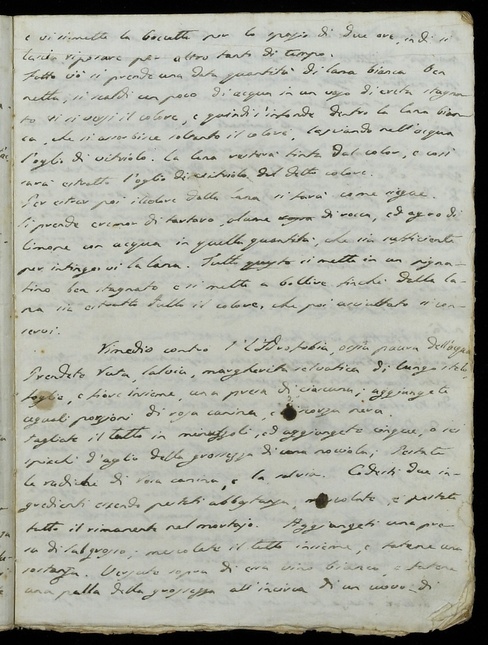 e vi si metta la boccetta per lo spazio di due ore, indi si
lascia riposare per altro tanto di tempo.
Fatto ciò si prende una data quantità di lana bianca ben
netta, si scaldi un poco di acqua in un vaso di creta stagna-
to vi si versi il colore, e quindi s'infonde dentro la lana bian-
ca, che si assorbisce soltanto il colore, lasciando nell'acqua
l'oglio di vitriolo. La lana resterà tinta del color, e così
sarà estratto l'oglio di vitriolo dal detto colore.
Per estrar poi il colore dalla lana si farà come siegue.
Si prende cremor di tartaro, alume di rocca, ed agro di
limone con acqua in quella quantità, che sia sufficiente
per intingervi la lana. Tutto questo si mette in un pigna-
tino ben stagnato e si mette a bollire finchè dalla la-
na sia estratto tutto il colore, che poi asciuttato si con-
servi.
Rimedio contro l'Idrofobia, ossia paura dell'acqua
Prendete Ruta, salvia, margherita selvatica di lungo stelo
foglie, e fiore insieme, una presa di ciascuna; aggiungete
eguali porzioni di rosa canina, e scorza nera.
Tagliate il tutto in minuzzoli, ed aggiungete cinque, o sei
spicchi d'aglio della grossezza di una nocciola; Pestate
le radiche di rosa canina, e la salvia. Codesti due in-
gredienti essendo pestati abbastanza, mescolate, e pestate
tutto il rimanente nel mortajo. Aggiungeti una pre-
sa di sal grosso; mescolate il tutto insieme, e fatene una
sostanza. Versate sopra di essa vino bianco, e fatene
una palla della grossezza all'incirca di un uovo di